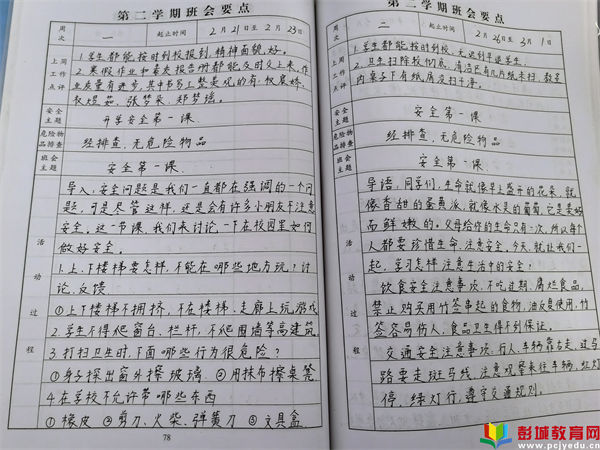 第二学期班会要点
周次 一 起止时间 2月21日至2月23日
上周工作点评
1.学生都能按时到校报到,精神面貌好。
2.寒假作业和有关报告册都能及时交上来,作
业质量有进步,其中书写整美观的有:权宸娇、
权煜茹、张梦采、郑梦瑶。
安全主题 开学安全第一课
危险物品排查 经排查,无危险物品
班会主题 安全第一课
活动过程
导入:安全问题是我们一直都在强调的一个问
题,可是尽管这样,还是会有许多小朋友不注意
安全。这一节课,我们来讨论一下在校园里如何
做好安全。
1.上、下楼梯要怎样,不能在哪些地方玩?讨
论、反馈
①上下楼梯不拥挤,不在楼梯、走廊上玩游戏
2.学生不得爬窗台、栏杆,不爬围墙等高建筑
3.打扫卫生时,下面哪些行为很危险?
①身子探出窗外擦玻璃 ②用抹布擦桌凳
4.在学校不允许带哪些东西
①橡皮 ②剪刀、火柴、弹簧刀 ③文具盒
78
第二学期班会要点
周次 二 起止时间 2月26日至3月1日
上周工作点评
1.学生都能按时到校,无迟到早退学生。
2.卫生扫除较彻底,清洁区有几片纸未扫,教室
内桌子下有纸屑没扫干净。
安全主题 安全第一课
危险物品排查 经排查,无危险物品
班会主题 安全第一课
活动过程
导语:同学们,生命就像早上盛开的花朵,就
像香甜的蛋羹派,就像水灵的葡萄,它是美好
而鲜嫩的。父母给你的生命只有一次,所以每个
人都要珍惜生命,注意安全。今天,就让我们一
起,学习怎样注意生活中的安全:
饮食安全注意事项:不吃过期、腐烂食品,
禁止购买用竹签串起的食物,油反复使用,竹
签容易伤人,食品卫生得不到保证。
交通安全注意事项:行人、车辆靠右走,过马
路要走斑马线,注意观察来往车辆,红灯
停,绿灯行,遵守交通规则。
彭城教育网
www.pcjyedu.cn